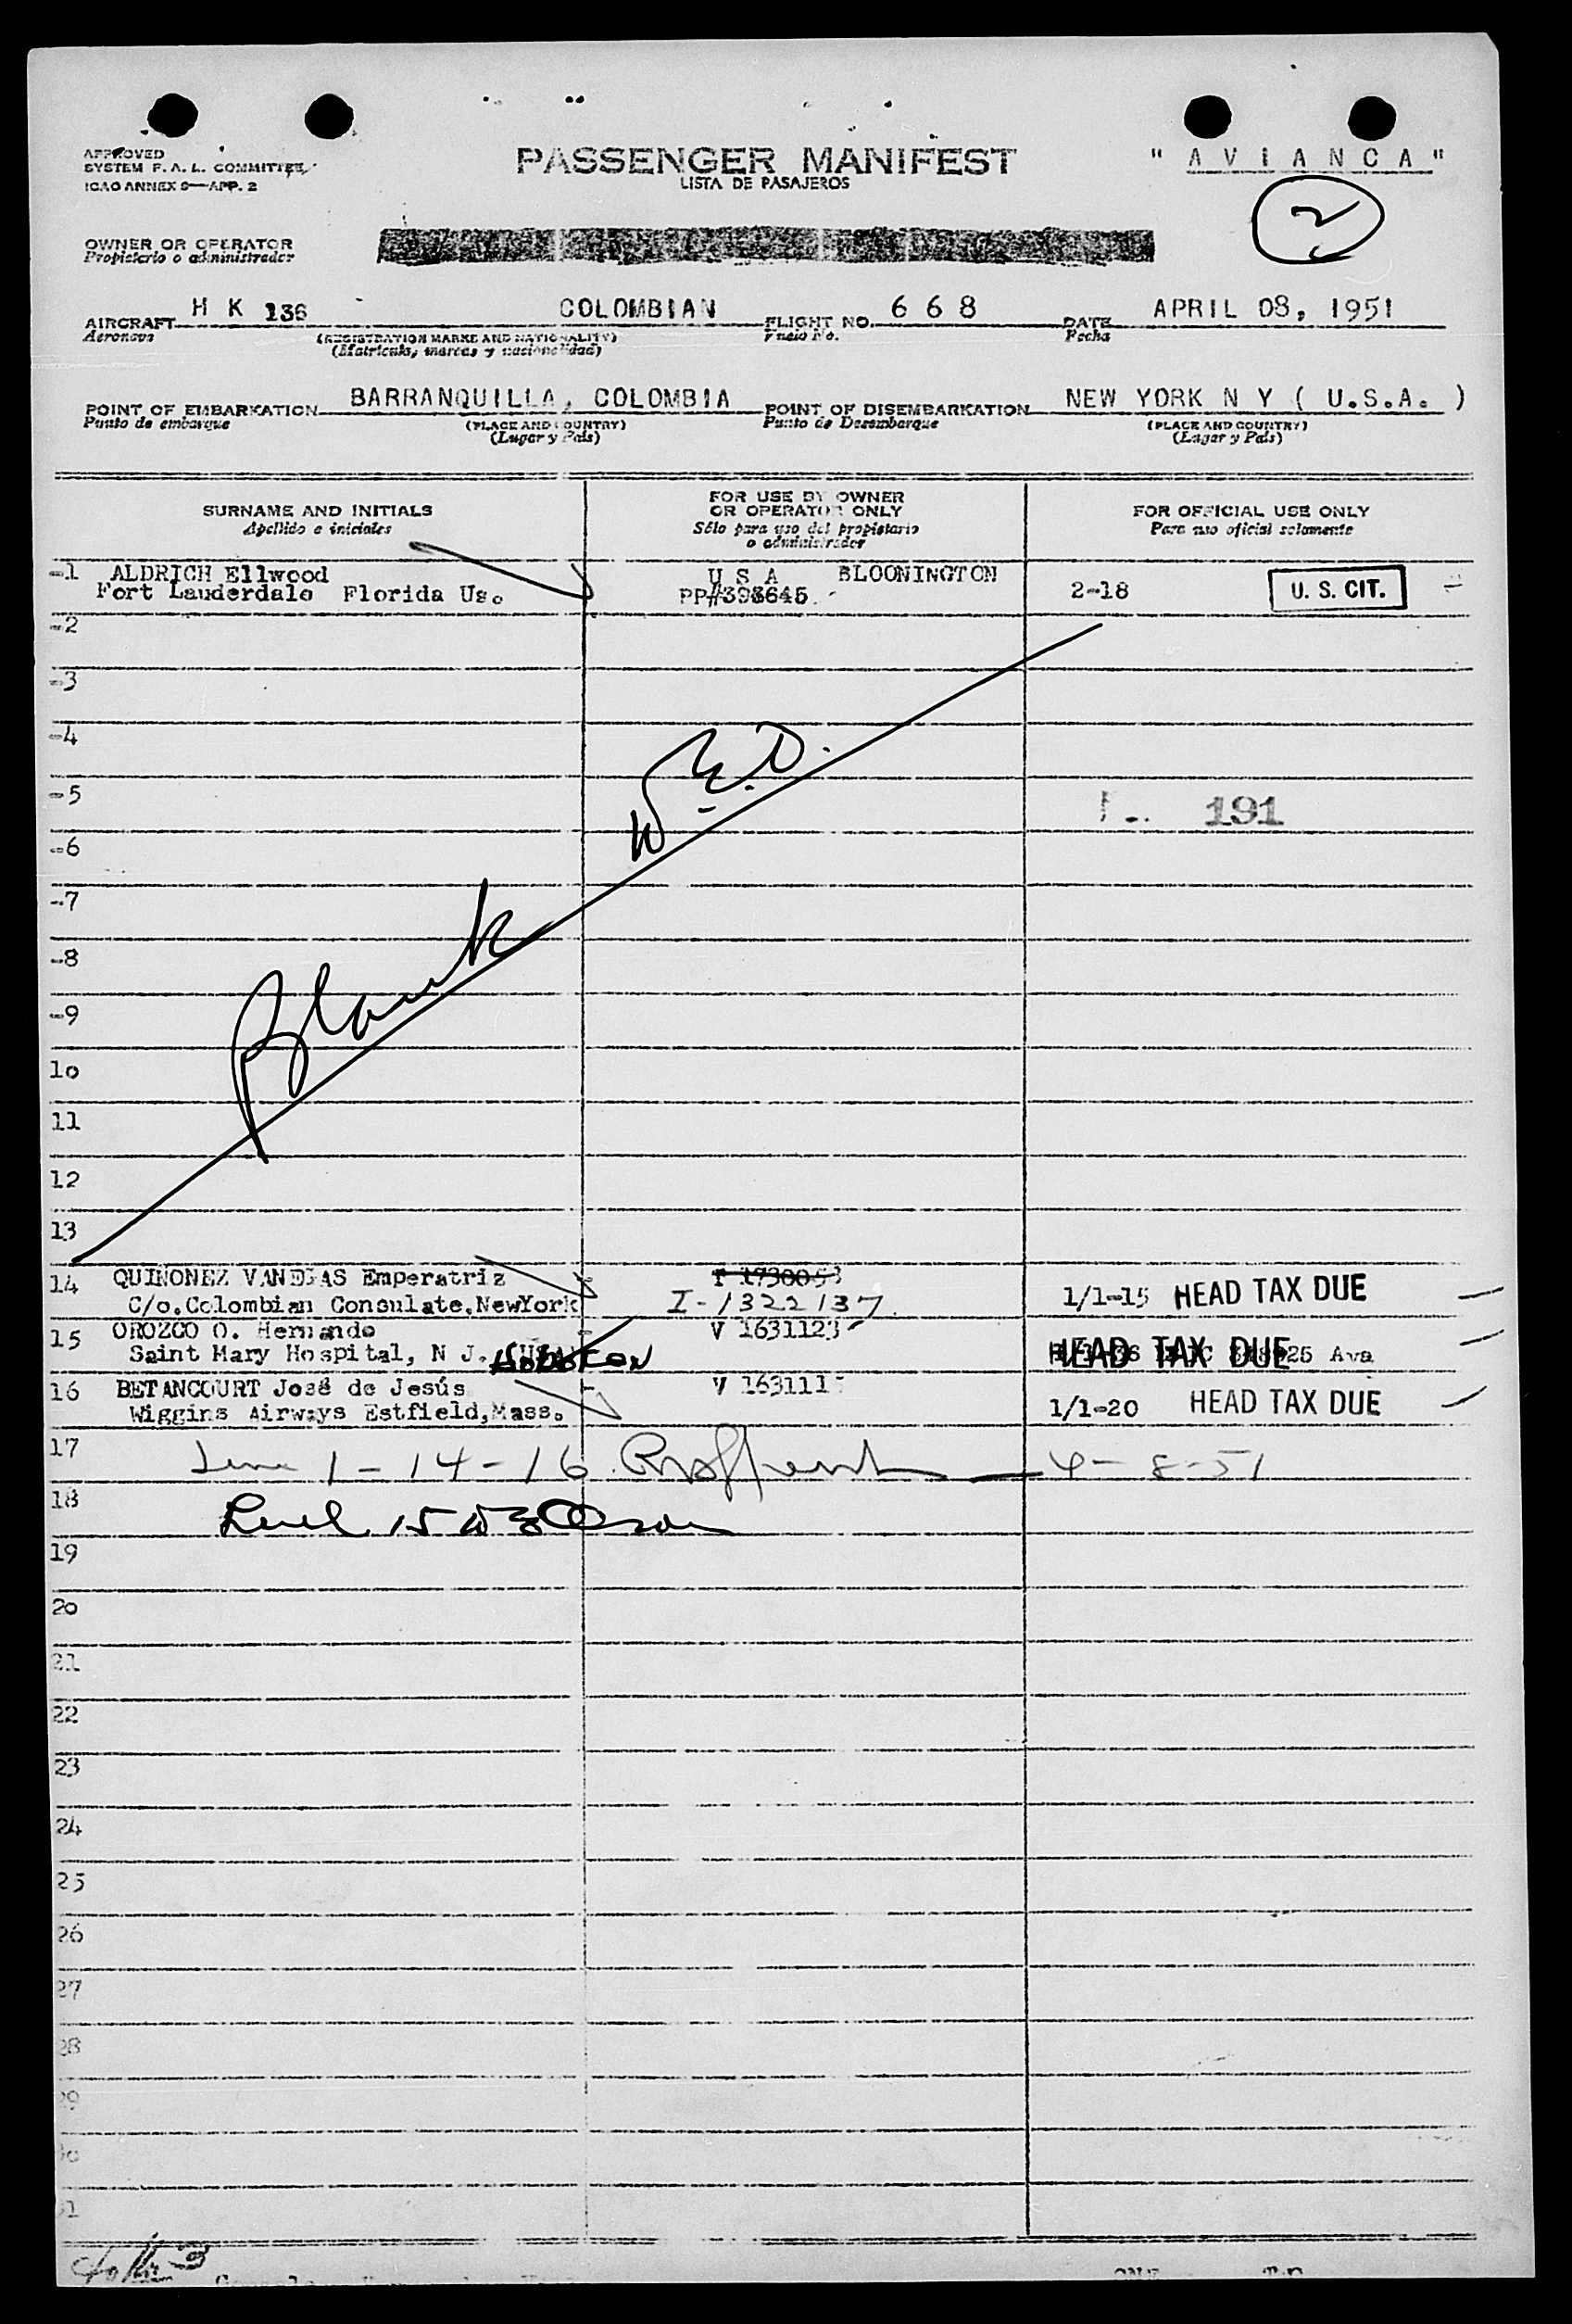 APPROVED
SYSTEM F. A. L. COMMITTEE
ICAO ANNEX 9—APP. 2
PASSENGER MANIFEST
LISTA DE PASAJEROS
" A V I A N C A "
2
OWNER OR OPERATOR
Propietario o administrador
AIRCRAFT H K 136 COLOMBIAN FLIGHT NO. 6 6 8 DATE APRIL 08, 1951
Aeronave (REGISTRATION MARKS AND NATIONALITY) Vuelo No. Fecha
(Matrícula, marcas y nacionalidad)
POINT OF EMBARKATION BARRANQUILLA, COLOMBIA POINT OF DISEMBARKATION NEW YORK N Y ( U.S.A. )
Punto de embarque (PLACE AND COUNTRY) Punto de Desembarque (PLACE AND COUNTRY)
(Lugar y País) (Lugar y País)
SURNAME AND INITIALS FOR USE BY OWNER OR OPERATOR ONLY FOR OFFICIAL USE ONLY
Apellido e iniciales Sólo para uso del propietario o administrador Para uso oficial solamente
-1 ALDRICH Ellwood U S A BLOONINGTON
Fort Lauderdale Florida Us. PP#393645. 2-18 U. S. CIT.
-2
-3
-4
W.E.O.
-5
191
-6
-7
-8
Blank
-9
10
11
12
13
14 QUINONEZ VANEGAS Emperatriz
C/o.Colombian Consulate,NewYork I-1322137 1/1-15 HEAD TAX DUE
15 OROZCO O. Hernando V 1631123
Saint Mary Hospital, N J. HOBOKEN HEAD TAX DUE 25 Ava
16 BETANCOURT José de Jesús V 163111
Wiggins Airways Estfield,Mass. 1/1-20 HEAD TAX DUE
17 Line 1-14-16 4-8-51
18 15
19
20
21
22
23
24
25
26
27
28